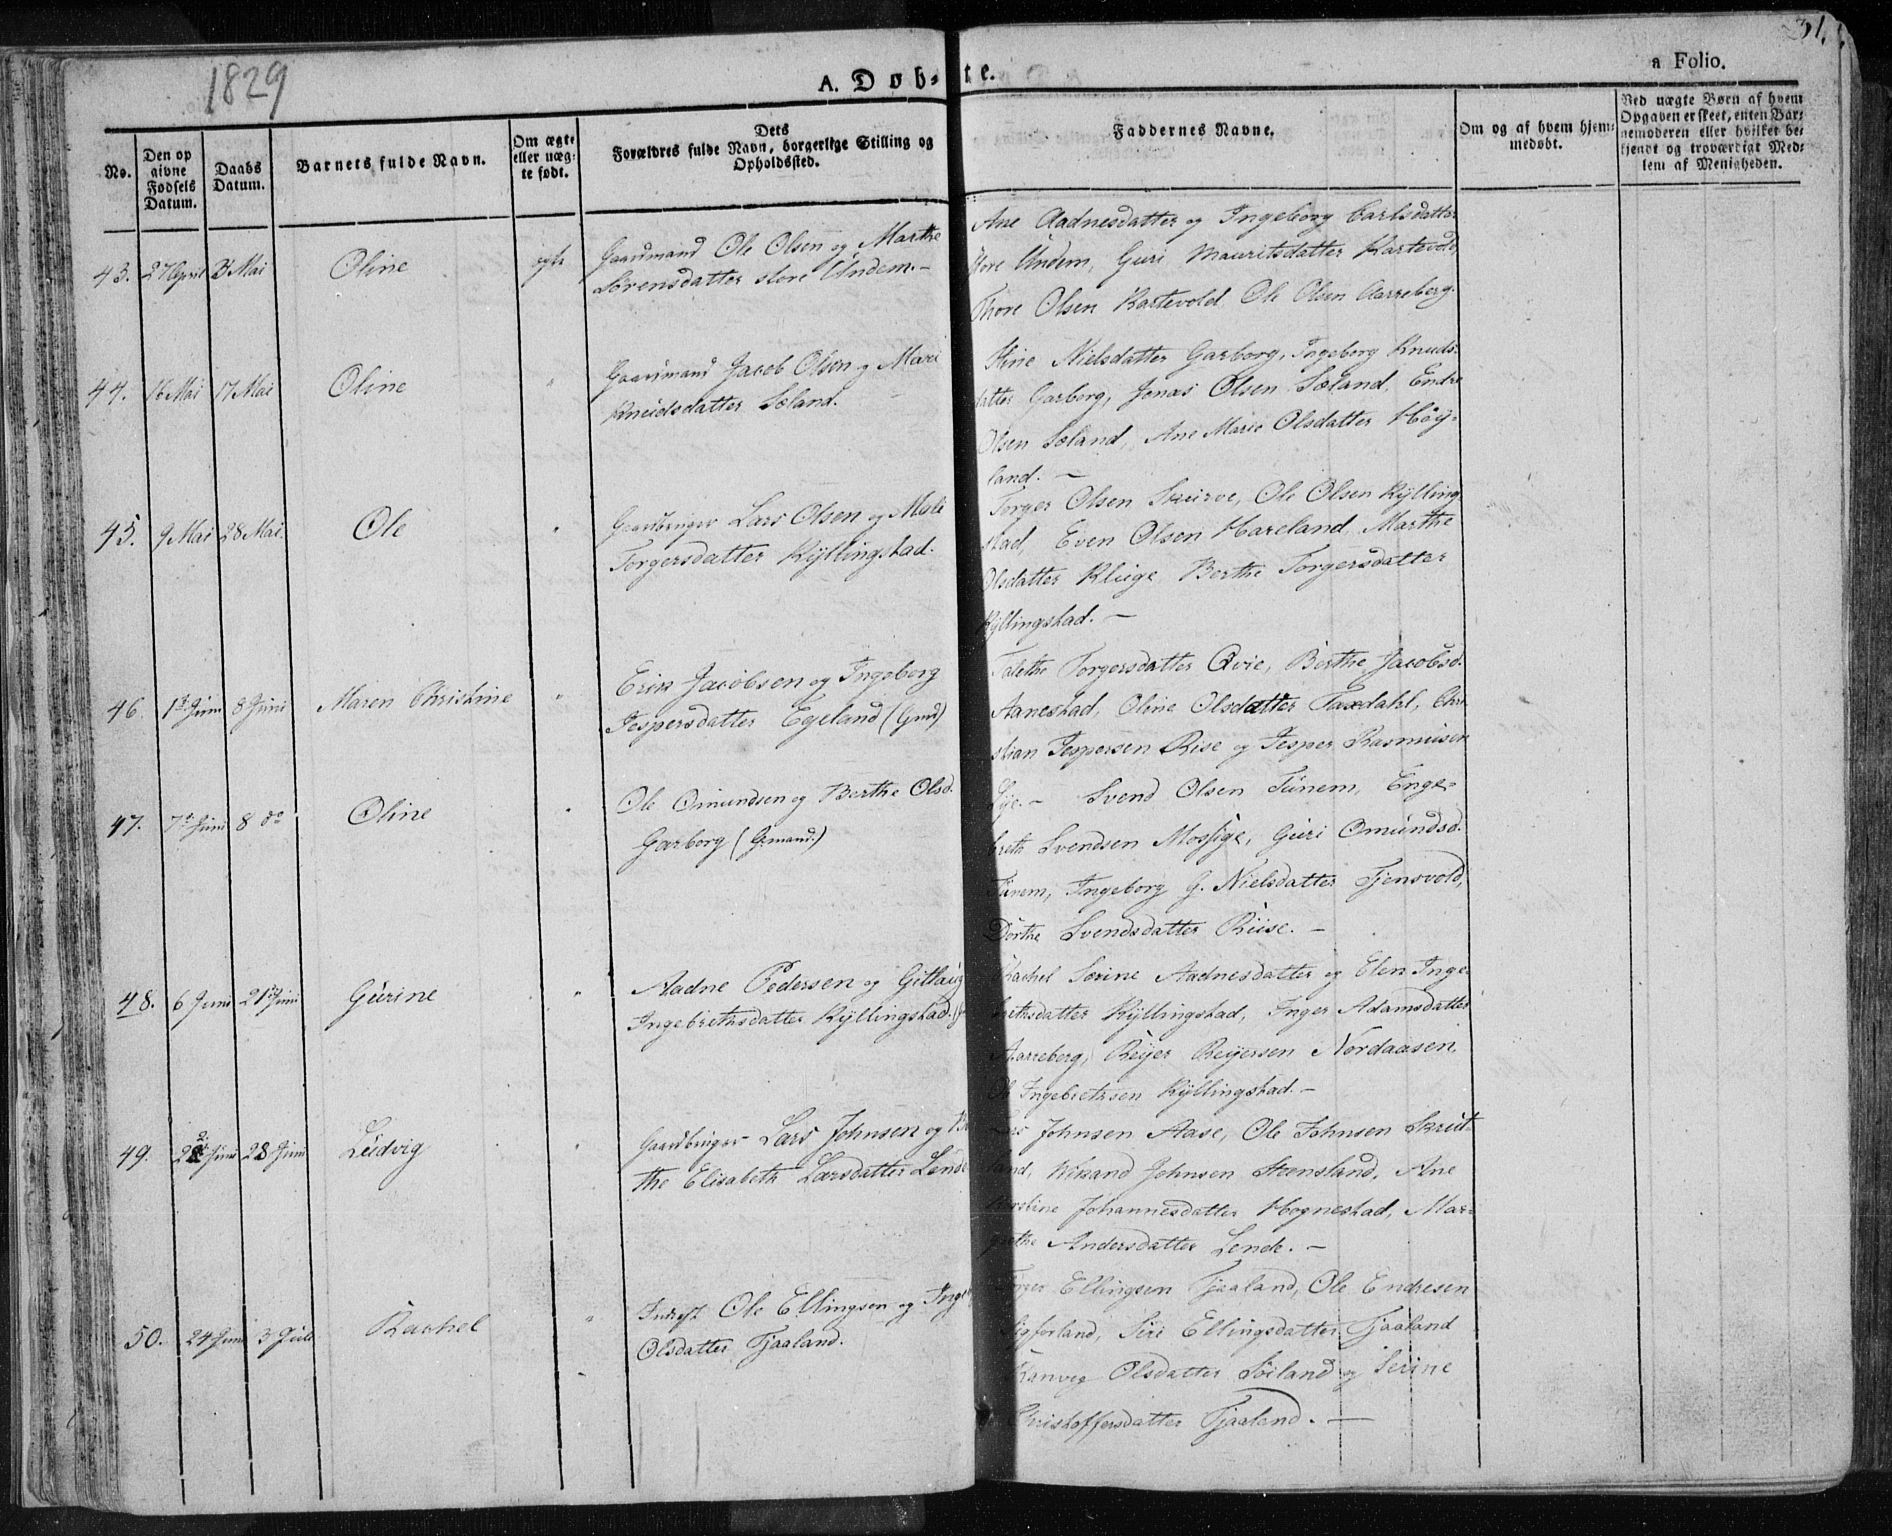 1829
A. Døb-
te.
31.
a Folio.
No.
Den op
givne
Fødsels
Datum.
Daabs
Datum.
Barnets fulde Navn.
Om ægte
eller uæg-
te født.
Dets
Forældres fulde Navn, borgerlige Stilling og
Opholdssted.
Faddernes Navne.
Om og af hvem hjem-
medøbt.
Ved uægte Børn af hvem
Opgaven er skeet, enten Bar-
nemoderen eller hvilket be-
kjendt og troværdigt Med-
lem af Menigheden.
43. 27 April 3 Mai Oline ægte
Gaardmand Ole Olsen og Marthe
Sørensdatter store Undem. -
Ane Aadnesdatter og Ingeborg Carlsdatter
store Undem, Guri Mauritsdatter Kartevold,
Thore Olsen Kartevold Ole Olsen Aarreberg.
44. 16 Mai 17 Mai Oline "
Gaardmand Jacob Olsen og Mari
Knudsdatter Sæland.
Stine Nielsdatter Garborg, Ingeborg Knuds-
datter Garborg, Jonas Olsen Sæland, Endre
Olsen Sæland, Ane Marie Olsdatter Höy-
land. -
45. 9 Mai 28 Mai. Ole "
Gaardbruger Lars Olsen og Mali
Torgersdatter Kyllingstad.
Torger Olsen Skurve, Ole Olsen Kylling
stad, Even Olsen Hareland, Marthe
Olsdatter Kluge Berthe Torgersdatter
Kyllingstad. -
46. 1ste Juni 8 Juni Maren Christine "
Erik Jacobsen og Ingeborg
Jespersdatter Egeland (Gmd)
Talethe Torgersdatter Qvie, Berthe Jacobsd.
Aanestad, Oline Olsdatter Taxdahl, Chri
stian Jespersen Rise og Jesper Rasmusen
Lye. -
47. 7de Juni 8 do Oline "
Ole Omundsen og Berthe Olsd.
Garborg (Gmand.)
Svend Olsen Tunem, Enge-
breth Svendsen Mossige, Guri Omundsd.
Tunem, Ingeborg G. Nielsdatter Tjensvold,
Dorthe Svendsdatter Riise. -
48. 6 Juni 21 Juni Gurine "
Aadne Pedersen og Gitlaug
Ingebrethsdatter Kyllingstad.
Rachel Serine Aadnesdatter og Elen Inge-
brethsdatter Kyllingstad, Inger Adamsdatter
Aarreberg, Reyer Reyersen Nordaasen
Ole Ingebretsen Kyllingstad. -
49. 22 Juni 28 Juni Ludvig "
Gaardbruger Lars Johnsen og Ber
the Elisabeth Larsdatter Lende
Lars Johnsen Aase, Ole Johnsen Skrut-
land, Johnsen Stensland, Ane
Johannesdatter Hognestad, Mar-
grethe Andersdatter Lende. -
50. 24 Juni 3 Juli Rachel "
Inderst Ole Ellingsen og Inge
Olsdatter Tjaaland.
Ellingsen Tjaaland, Ole Endresen
Sigforland, Siri Ellingsdatter Tjaaland
Ranveg Olsdatter Söiland og Serine
Christoffersdatter Tjaaland. -